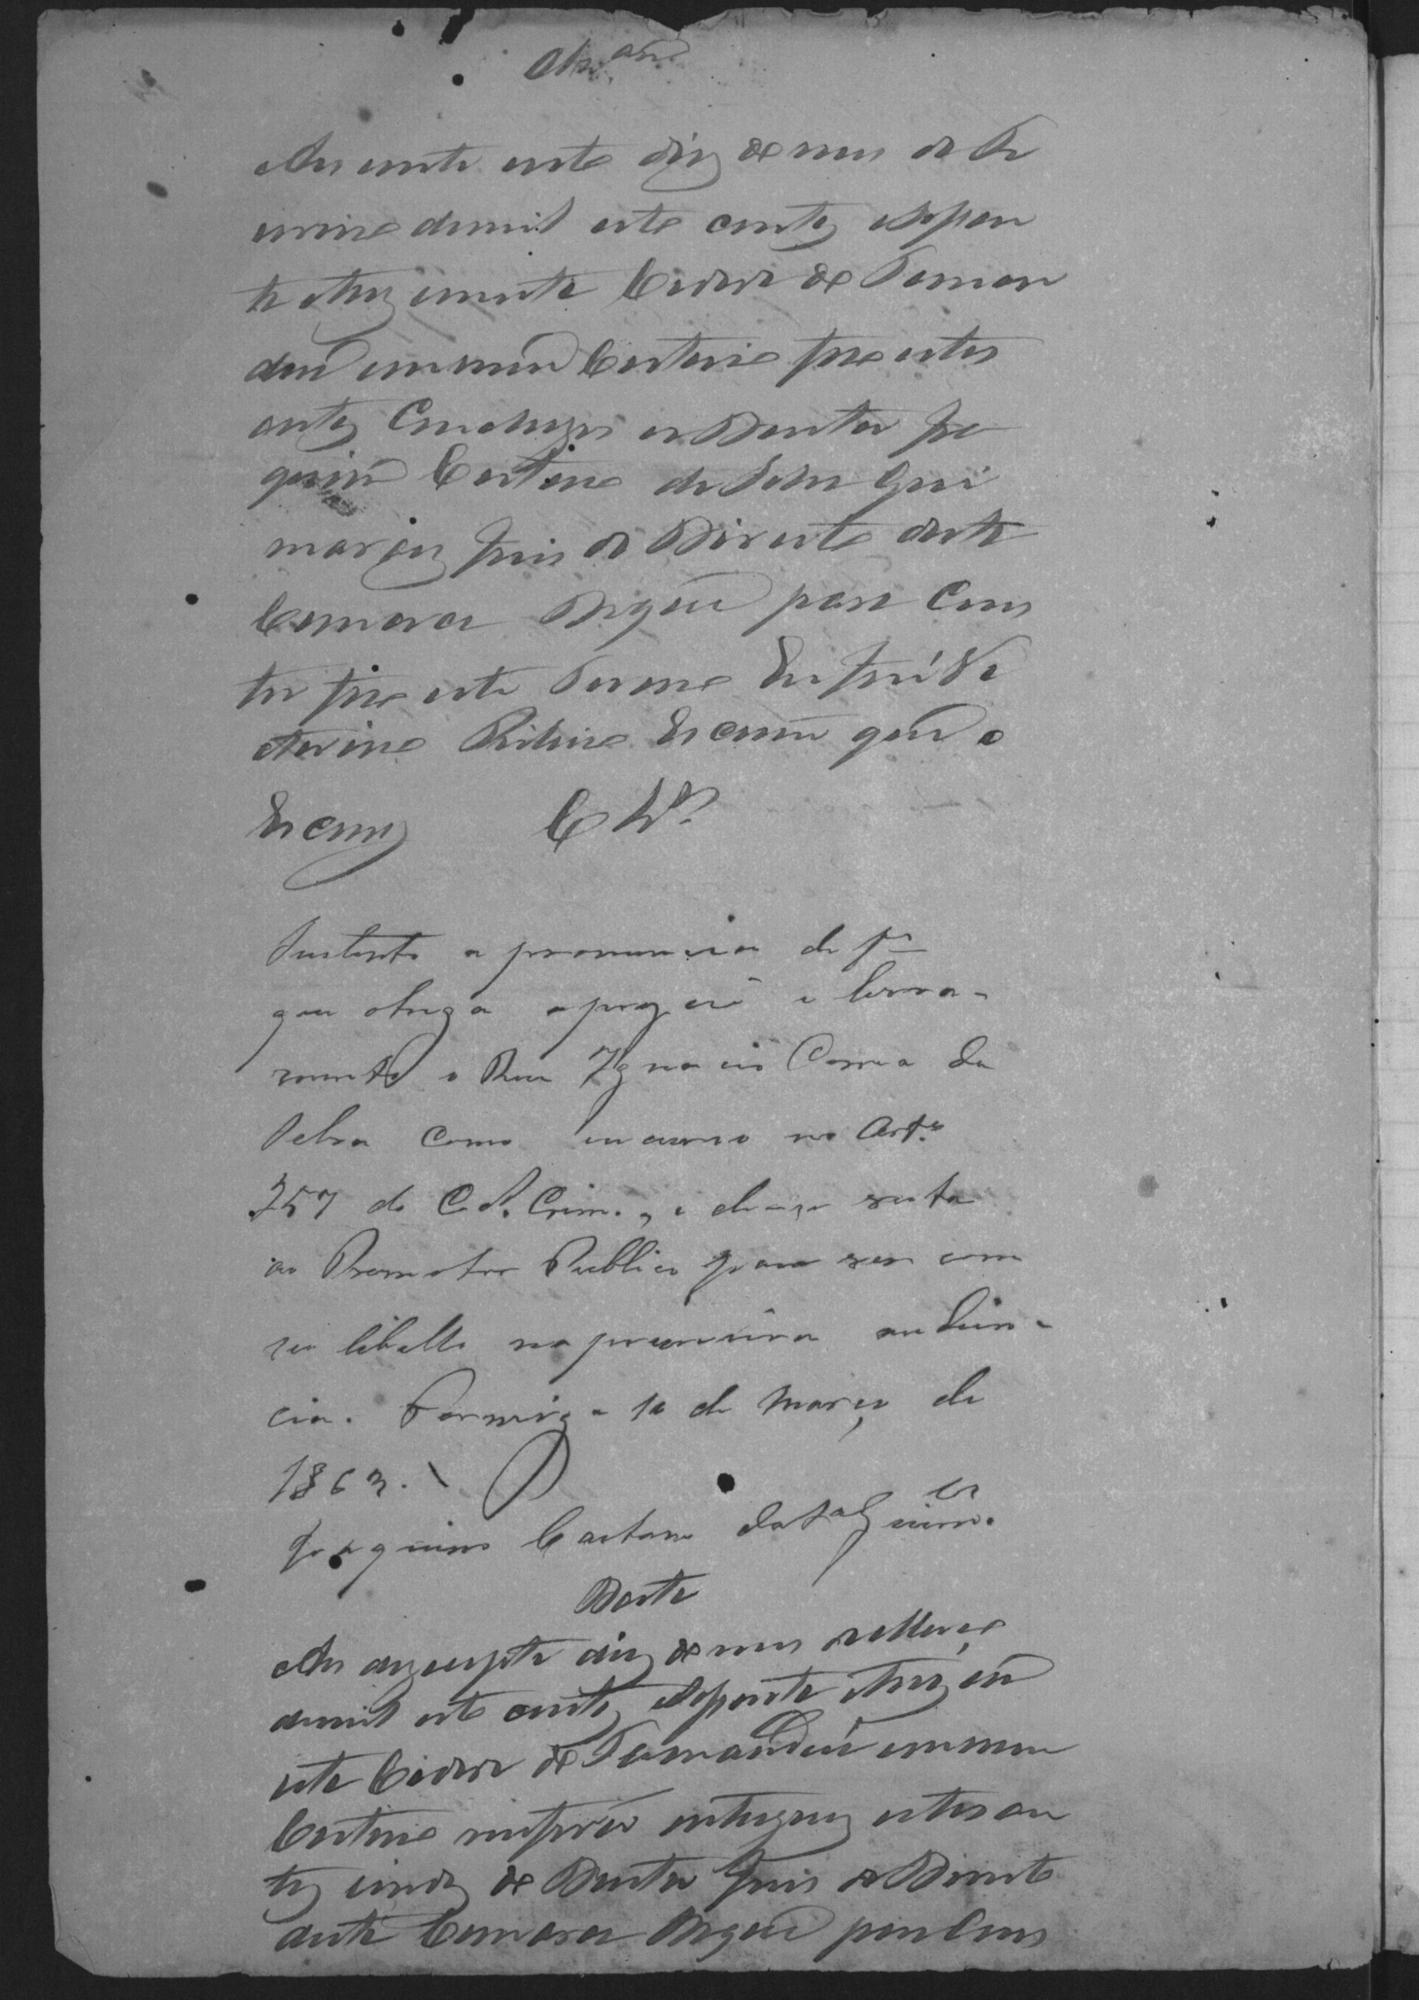 Aos vinte oito dias do mes de Fe
vereiro de mil oito centos e sessen
ta e tres nesta Cidade de Taman
duá em meu Cartorio faço estes
autos Conclusos ao Doutor Joa
quim Caetano da Silva Gui
marães Juis de Direito desta
Comarca Do que para Cons
tar faço este Termo Eu José
Ribeiro Escrivão que o
Escrevy Clos.
Sustento a pronuncia de f
que obriga a prizão e livra-
mento o Reu Ignacio Correa da
Silva como incurso no Artº
257 do Cod. Crim., e dê-se vista
ao Promotor Publico para vir com
seu libello na primeira audien-
cia. Formiga 10 de Março de
1863.
Joaquim Caetano da Sª Guimes.
Data
Aos dezesepte dias do mes de Março
de mil oito centos e sessenta e tres em
esta Cidade de Tamanduá em meu
Cartorio me forão entregues estes au
tos vindos do Doutor Juis de Direito
desta Comarca Do que para Cons